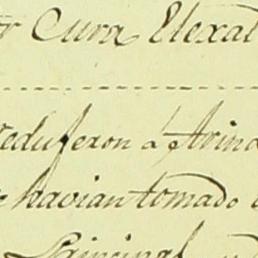 Cura Elexal
redujeron á Arina
havian tomado
Principal